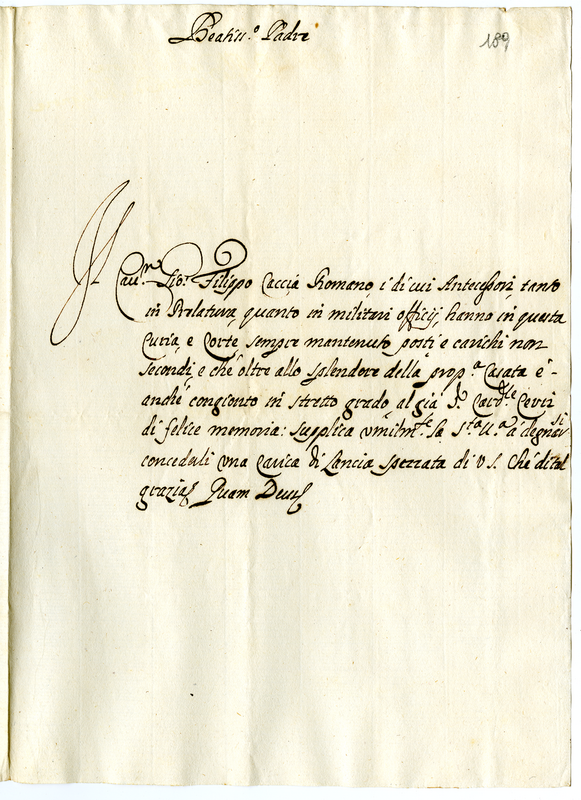 Beatiss.o Padre
189
Il Cau.r Gio: Filippo Caccia Romano, i di cui Antecessori tanto
in Prelatura, quanto in militari officij, hanno in questa
Curia, e Corte sempre mantenuto posti, e carichi non
secondi, e che oltre allo splendore della prop.a Casata è
anche congionto in stretto grado al già S.r Card.le Cerri
di felice memoria: supplica umilm.te la S.ta V.a à degnarsi
concederli una Carica di Lancia spezzata di V S. Che di tal
grazia Quam Deus